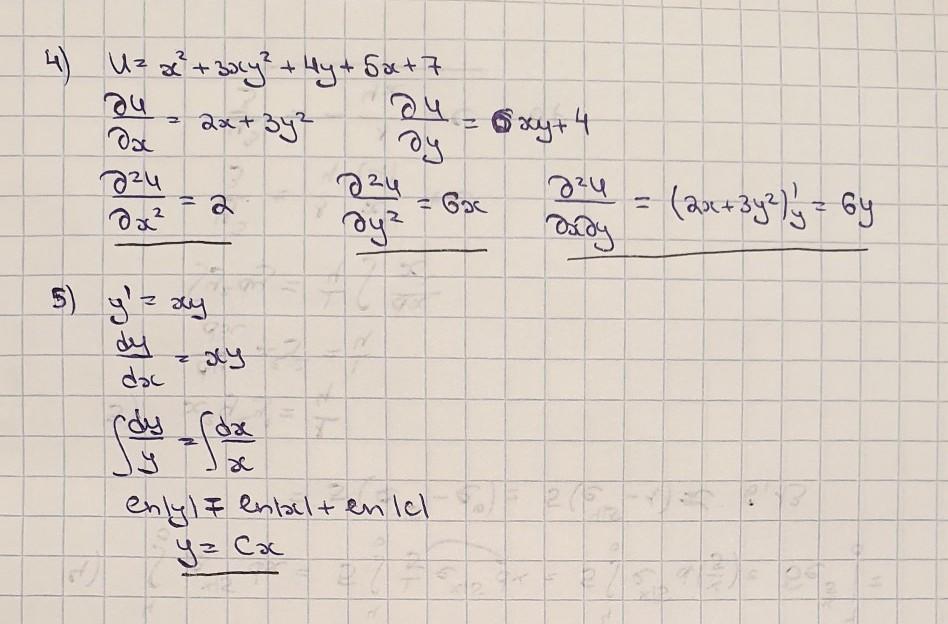 4) U = x² + 3xy² + 4y + 5x + 7
∂u/∂x = 2x + 3y² ∂u/∂y = 6xy + 4
∂²u/∂x² = 2 ∂²u/∂y² = 6x ∂²u/∂x∂y = (2x + 3y²)'y = 6y
5) y' = xy
dy/dx = xy
∫ dy/y = ∫ dx/x
ln|y| = ln|x| + ln|c|
y = Cx